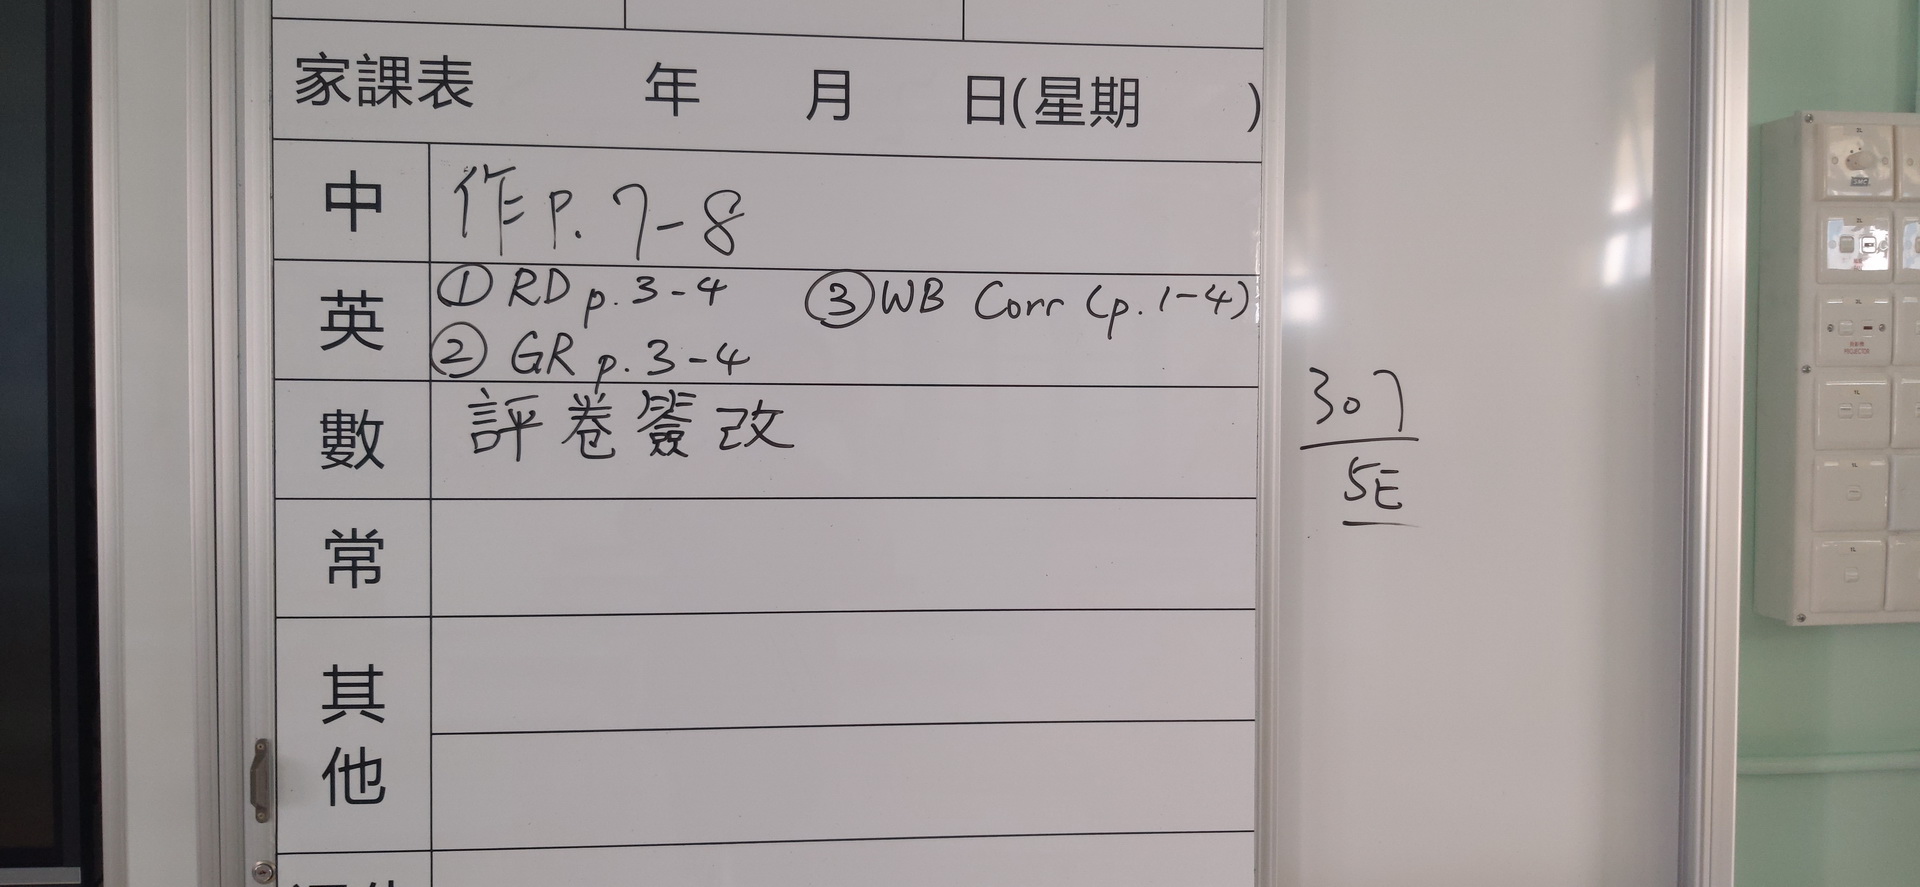 家課表 年 月 日(星期 )
中 作 p. 7-8
英 ① RD p. 3-4 ③ WB Corr (p. 1-4)
② GR p. 3-4
數 評卷簽改
常
其他
307
5E
PROJECTOR